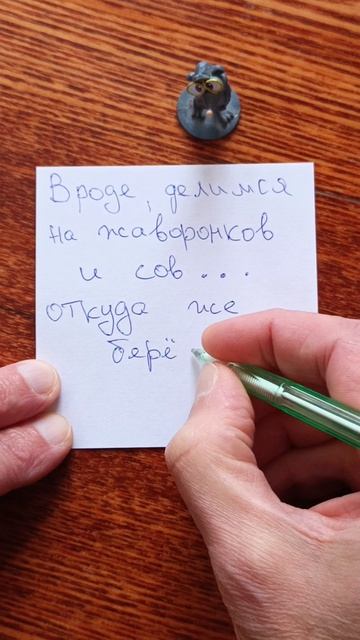 Вроде, делимся
на жаворонков
и сов...
откуда же
берё